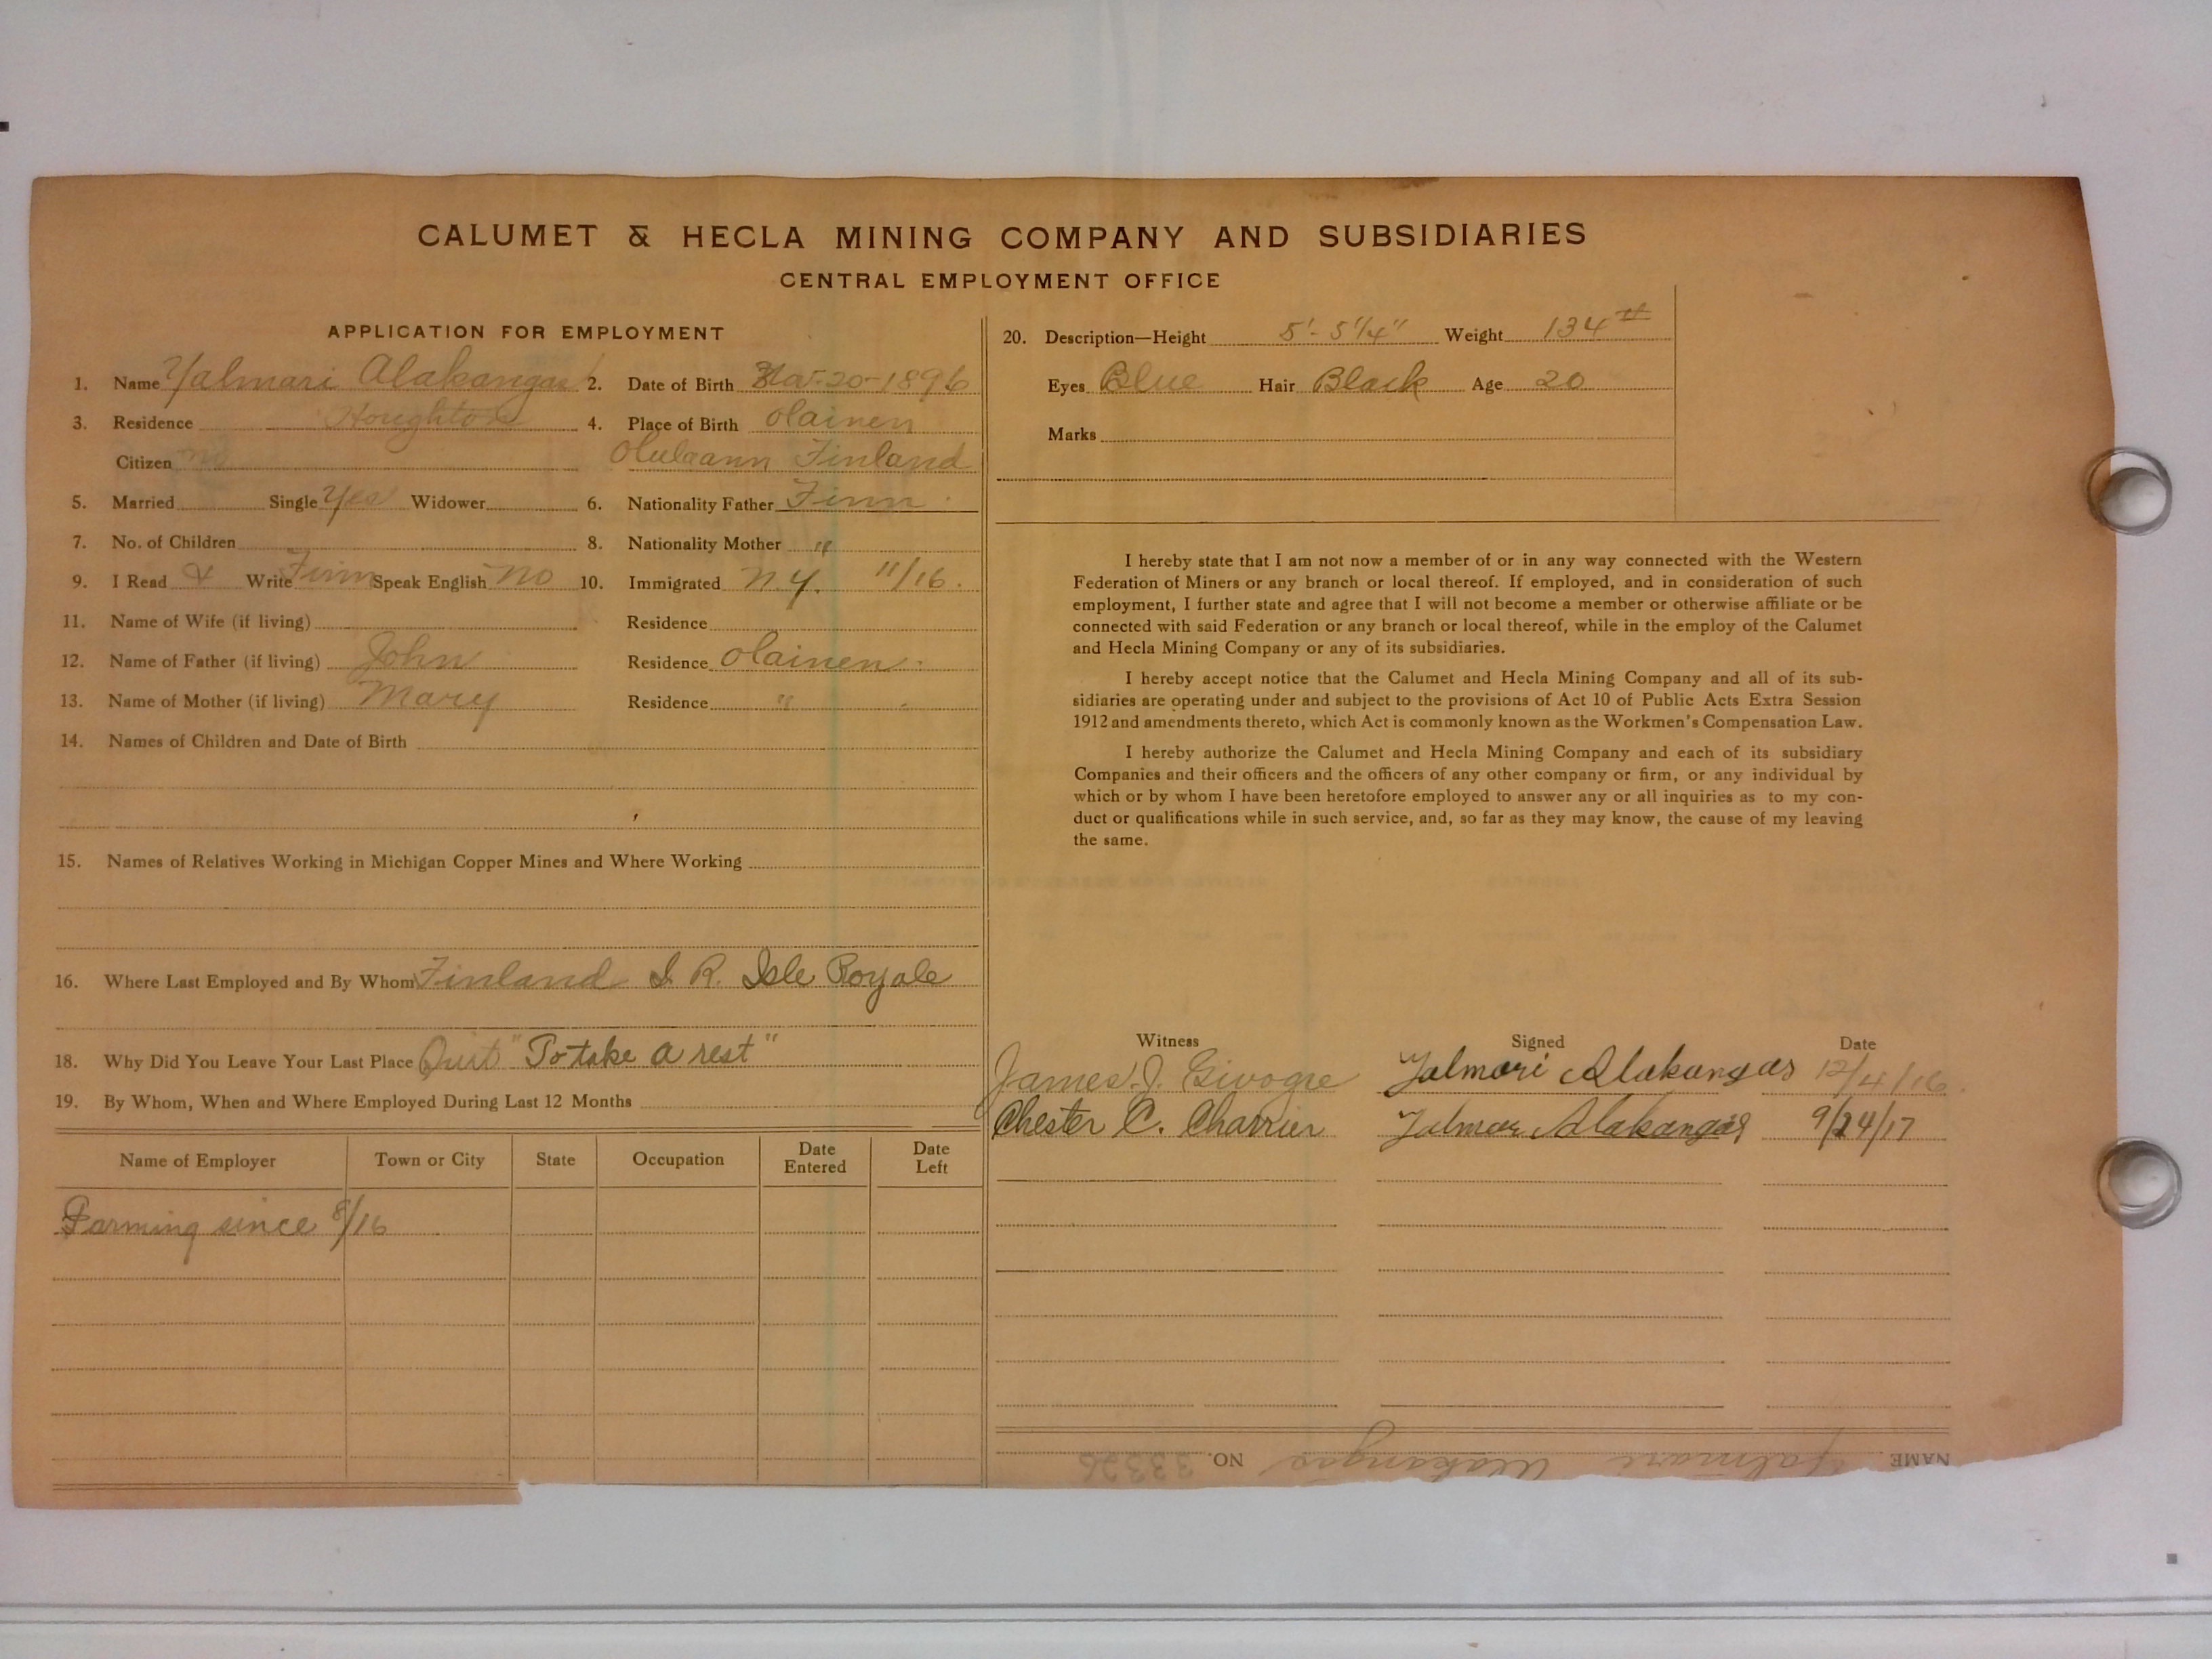 CALUMET & HECLA MINING COMPANY AND SUBSIDIARIES
CENTRAL EMPLOYMENT OFFICE
APPLICATION FOR EMPLOYMENT
1. Name Yalmari Alakangas 2. Date of Birth Mar-20-1896
3. Residence Houghton 4. Place of Birth Olainen
Citizen no Oulunann Finland
5. Married Single Yes Widower 6. Nationality Father Finn
7. No. of Children 8. Nationality Mother "
9. I Read & Write Finn Speak English no 10. Immigrated N.Y. 11/16.
11. Name of Wife (if living) Residence
12. Name of Father (if living) John Residence Olainen
13. Name of Mother (if living) Mary Residence "
14. Names of Children and Date of Birth
15. Names of Relatives Working in Michigan Copper Mines and Where Working
16. Where Last Employed and By Whom Finland I. R. Isle Royale
18. Why Did You Leave Your Last Place Quit "To take a rest"
19. By Whom, When and Where Employed During Last 12 Months
Name of Employer Town or City State Occupation Date Entered Date Left
Farming since 8/16
20. Description—Height 5'-5 1/4" Weight 134#
Eyes Blue Hair Black Age 20
Marks
I hereby state that I am not now a member of or in any way connected with the Western
Federation of Miners or any branch or local thereof. If employed, and in consideration of such
employment, I further state and agree that I will not become a member or otherwise affiliate or be
connected with said Federation or any branch or local thereof, while in the employ of the Calumet
and Hecla Mining Company or any of its subsidiaries.
I hereby accept notice that the Calumet and Hecla Mining Company and all of its sub-
sidiaries are operating under and subject to the provisions of Act 10 of Public Acts Extra Session
1912 and amendments thereto, which Act is commonly known as the Workmen's Compensation Law.
I hereby authorize the Calumet and Hecla Mining Company and each of its subsidiary
Companies and their officers and the officers of any other company or firm, or any individual by
which or by whom I have been heretofore employed to answer any or all inquiries as to my con-
duct or qualifications while in such service, and, so far as they may know, the cause of my leaving
the same.
Witness Signed Date
James J. Givogre Yalmari Alakangas 12/4/16.
Chester C. Charrier Yalmar Alakangas 9/24/17
NAME Yalmari Alakangas NO. 33326